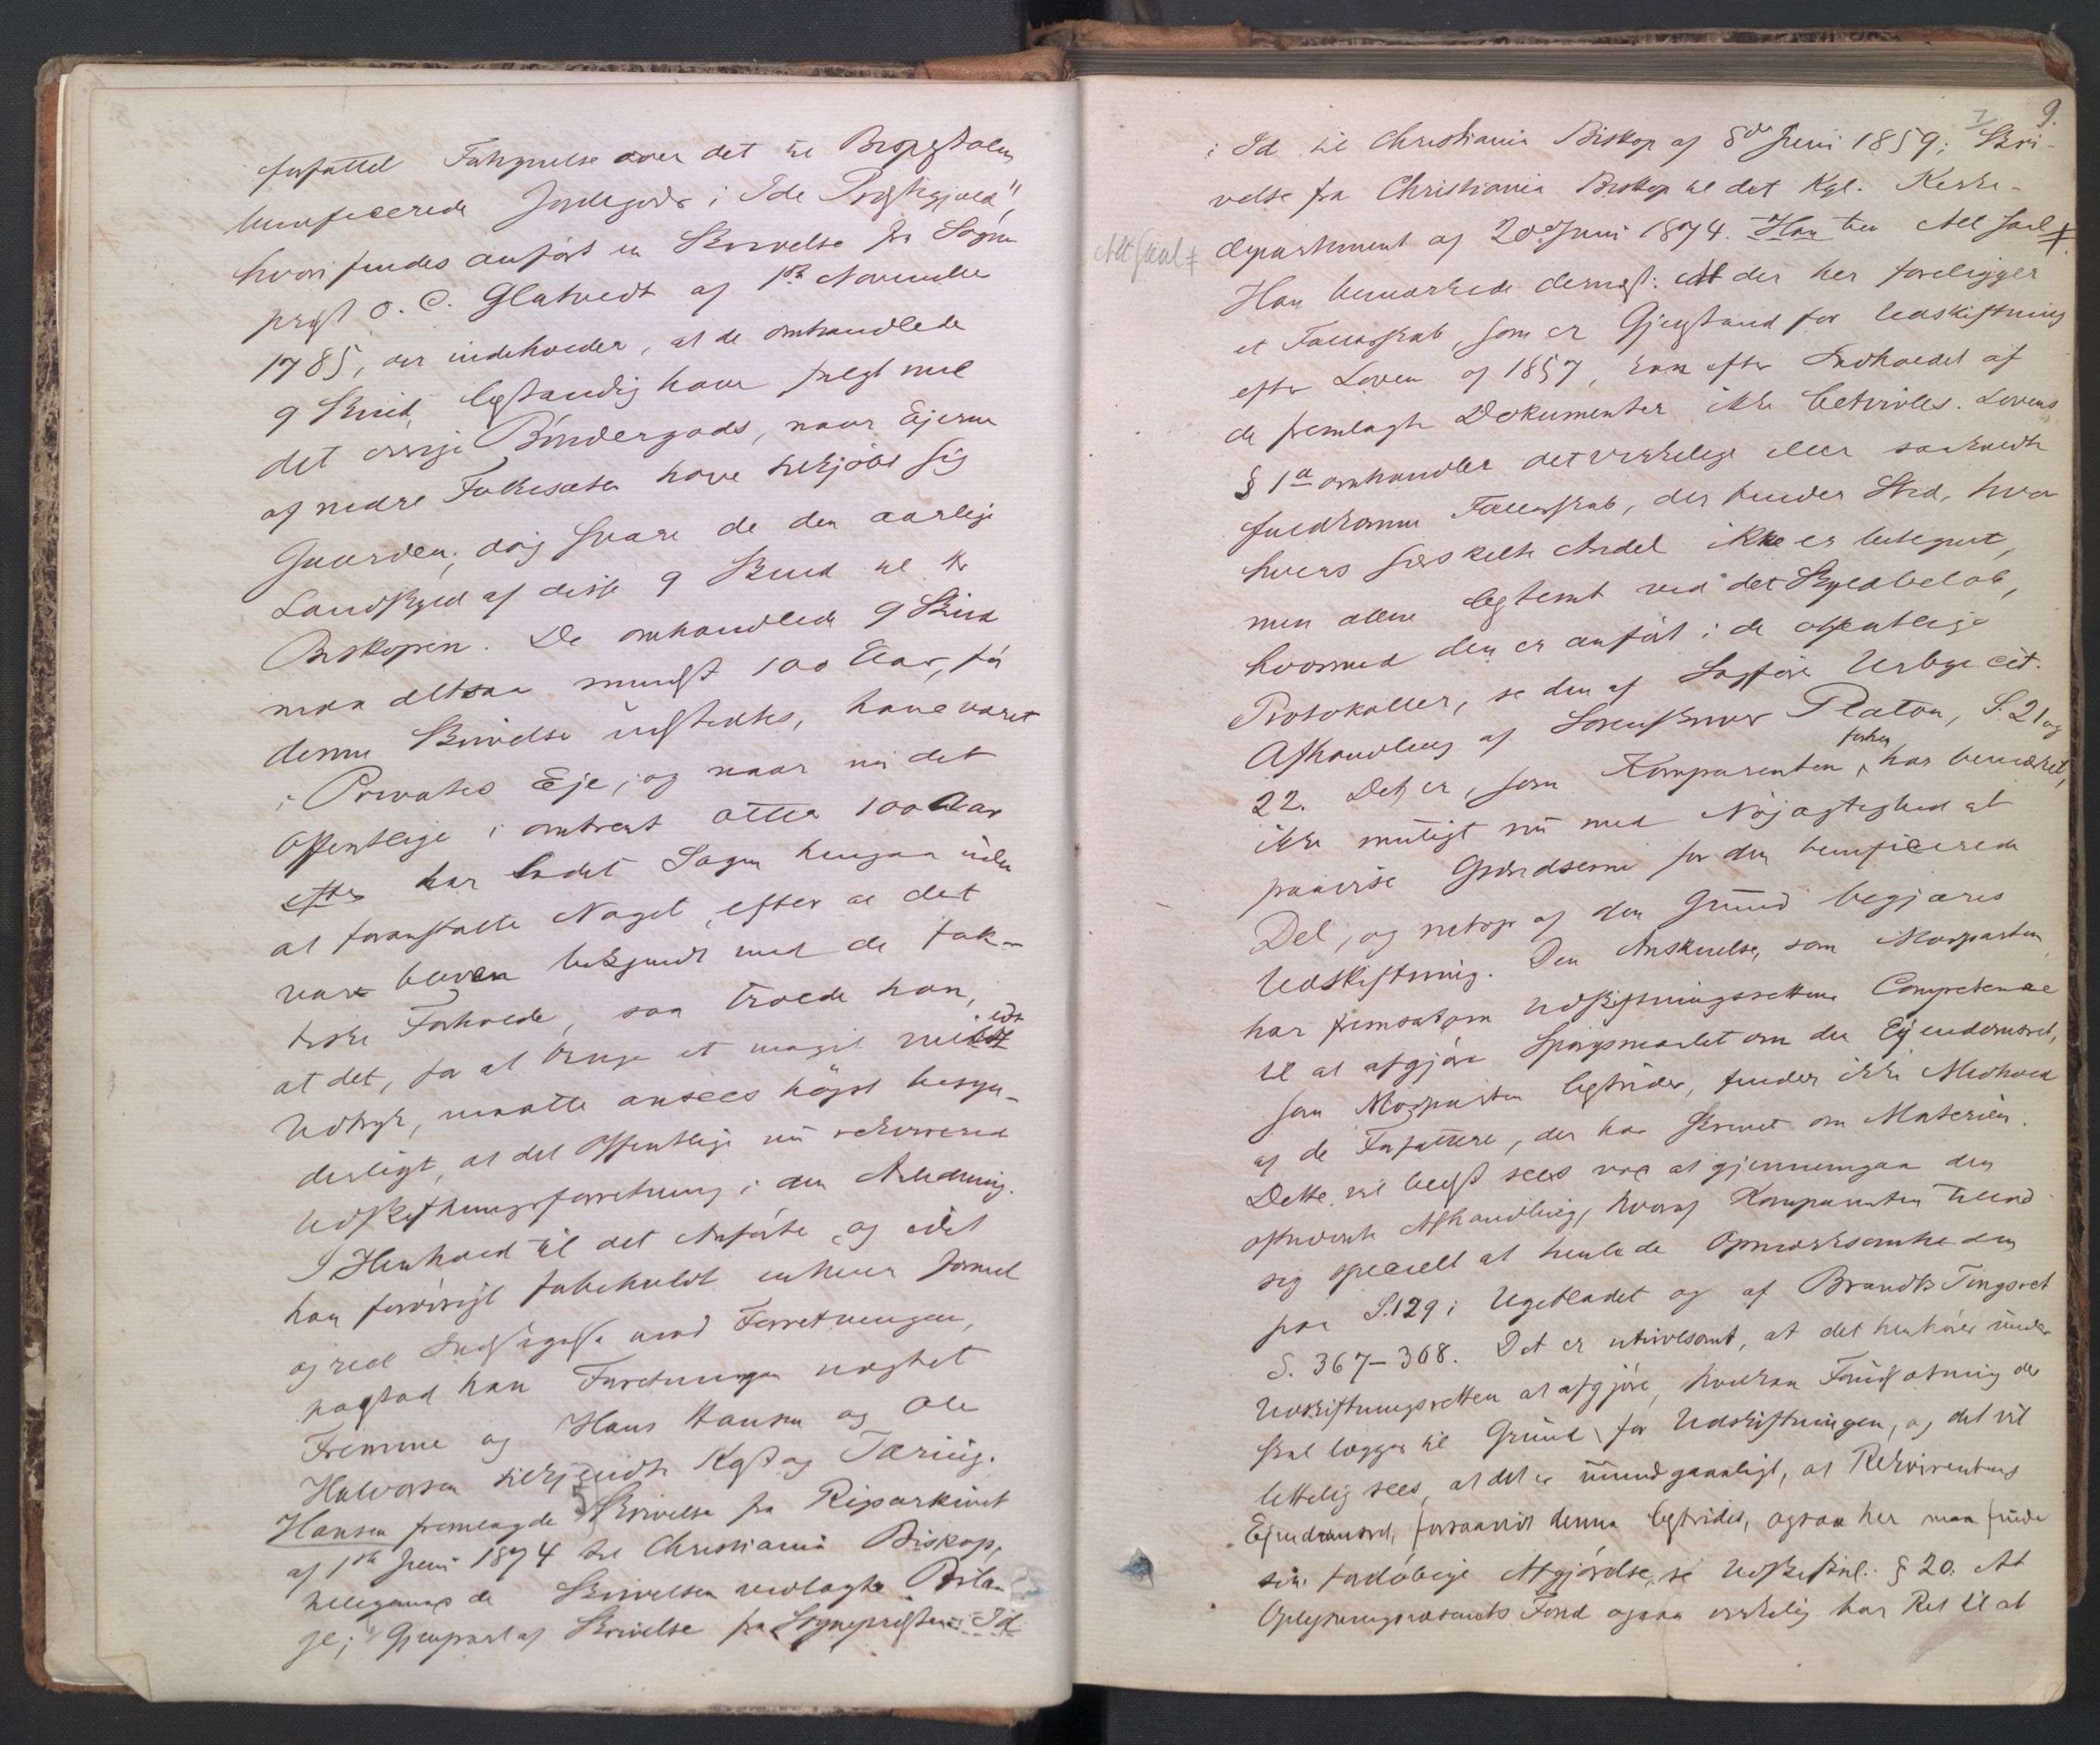 forfattet Fortegnelse over det til Bispestolen
beneficerede Jordegods i Ide Præstegjæld",
hvori findes anført en Skrivelse fra Sogne
præst O. C. Glatvedt af 1ste November
1785, der indeholder, at de omhandlede
9 Skind, bestandig have fulgt med
det øvrige Bøndergods, naar Ejerne
af nedre Folkesæter have tilkjøbt sig
Gaarden; dog svare de den aarlige
Landskyld af disse 9 Skind til Hr
Biskopen. De omhandlede 9 Skind
maa altsaa mindst 100 Aar, før
denne Skrivelse udstedtes, have været
i Privates Eje, og naar nu det
Offentlige i omtrent atter 100 Aar
efter har ladet Sagen hengaa uden
at foranstalte Noget, efter at det
var bleven bekjendt med de fak-
tiske Forholde, saa troede han,
at det, for at bruge et meget mildt
Udtryk, maatte ansees høyst besyn-
derligt, at det Offentlige nu rekvirerer
Udskiftningsforretning i den Anledning.
I Henhold til det Anførte, og idet
han forøvrigt forbeholdt enhver formel
og reel Indsigelse mod Forretningen,
paastod han Forretningen nægtet
Fremme og Hans Hansen og Ole
Halvorsen tilkjendt Kost og Tæring.
Hansen fremlagde 5) Skrivelse fra Riparkivet
af 1ste Juni 1874 til Christiania Biskop,
 de Skrivelsen vedlagte Bila
ge; Gjenpart af Skrivelse fra Sognepræsten i Id
9.
i Id til Christiania Biskop af 8de Juni 1859; Skri-
velse fra Christiania Biskop til det Kgl. Kirke-
departement af 20de Juni 1874. Han
Alt saal ≠
Han bemærkede dernæst: At der her foreligger
et Fællesskab, som er Gjenstand for Udskiftning
efter Loven af 1857, kan efter Indholdet af
de fremlagte Dokumenter ikke betvivles. Lovens
§ 1 a omhandler det virkelige eller saakaldte
fuldkomne Fællesskab, der finder Sted, hvor
hvers særskilte Andel ikke er betegnet,
men alene bestemt ved det Skyldbeløb,
hvormed den er anført i de offentlige
Protokoller, se den af Sagfører Urbye cit.
Afhandling af Sorenskriver Platou, S. 21 og
22. Det er, som Komparenten forhen har bemærket,
ikke muligt nu med Nøjagtighed at
paavise Grændserne for den beneficerede
Del, og netop af den Grund begjæres
Udskiftning. Den Anskuelse, som Modparten
har fremsat om Udskiftningsrettens Competence
til at afgjøre Spørgsmaalet om den Ejendomsret,
som Modparten bestrider, finder ikke Medhold
af de Forfattere, der har skrevet om Materien.
Dette vil bedst sees ved at gjennemgaa den
oftnævnte Afhandling, hvoraf Komparenten tillod
sig specielt at henlede Opmærksomheden
paa S. 129 i Ugebladet og af Brandts Tingsret
S. 367–368. Det er utvivlsomt, at det henhører under
Udskiftningsretten at afgjøre, hvilken Forudsætning der
skal lægges til Grund for Udskiftningen, og det vil
lettelig sees, at det er uundgaaeligt, at Rekvirentens
Ejendomsret, forsaavidt denne bestrides, ogsaa her maa finde
sin foreløbige Afgjørelse, se Udskiftnl. § 20. At
Oplysningsvæsenets Fond ogsaa virkelig har Ret til at